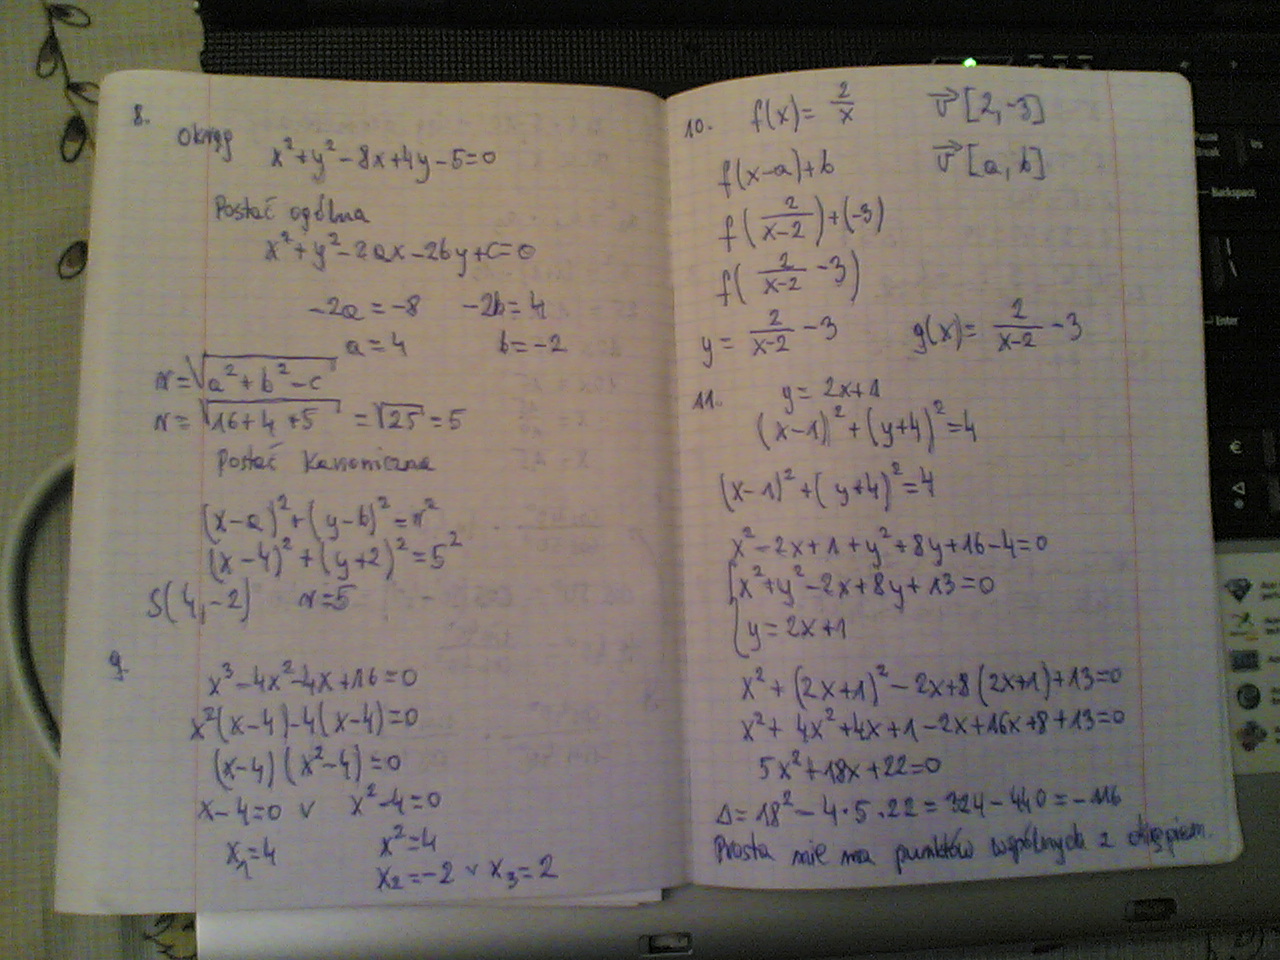 8.
Okrąg
x²+y²-8x+4y-5=0
Postać ogólna
x²+y²-2ax-2by+c=0
-2a=-8 -2b=4
a=4 b=-2
r=√(a²+b²-c)
r=√(16+4+5) =√25=5
Postać kanoniczna
(x-a)²+(y-b)²=r²
(x-4)²+(y+2)²=5²
S(4,-2) r=5
9.
x³-4x²-4x+16=0
x²(x-4)-4(x-4)=0
(x-4)(x²-4)=0
x-4=0 v x²-4=0
x₁=4 x²=4
x₂=-2 v x₃=2
10. f(x)=2/x v⃗[2,-3]
f(x-a)+b v⃗[a,b]
f(2/(x-2))+(-3)
f(2/(x-2) -3)
y=2/(x-2) -3 g(x)=2/(x-2) -3
11. y=2x+1
(x-1)²+(y+4)²=4
(x-1)²+(y+4)²=4
x²-2x+1+y²+8y+16-4=0
{x²+y²-2x+8y+13=0
{y=2x+1
x²+(2x+1)²-2x+8(2x+1)+13=0
x²+4x²+4x+1-2x+16x+8+13=0
5x²+18x+22=0
Δ=18²-4·5·22=324-440=-116
Prosta nie ma punktów wspólnych z okręgiem.
Backspace
Enter
€